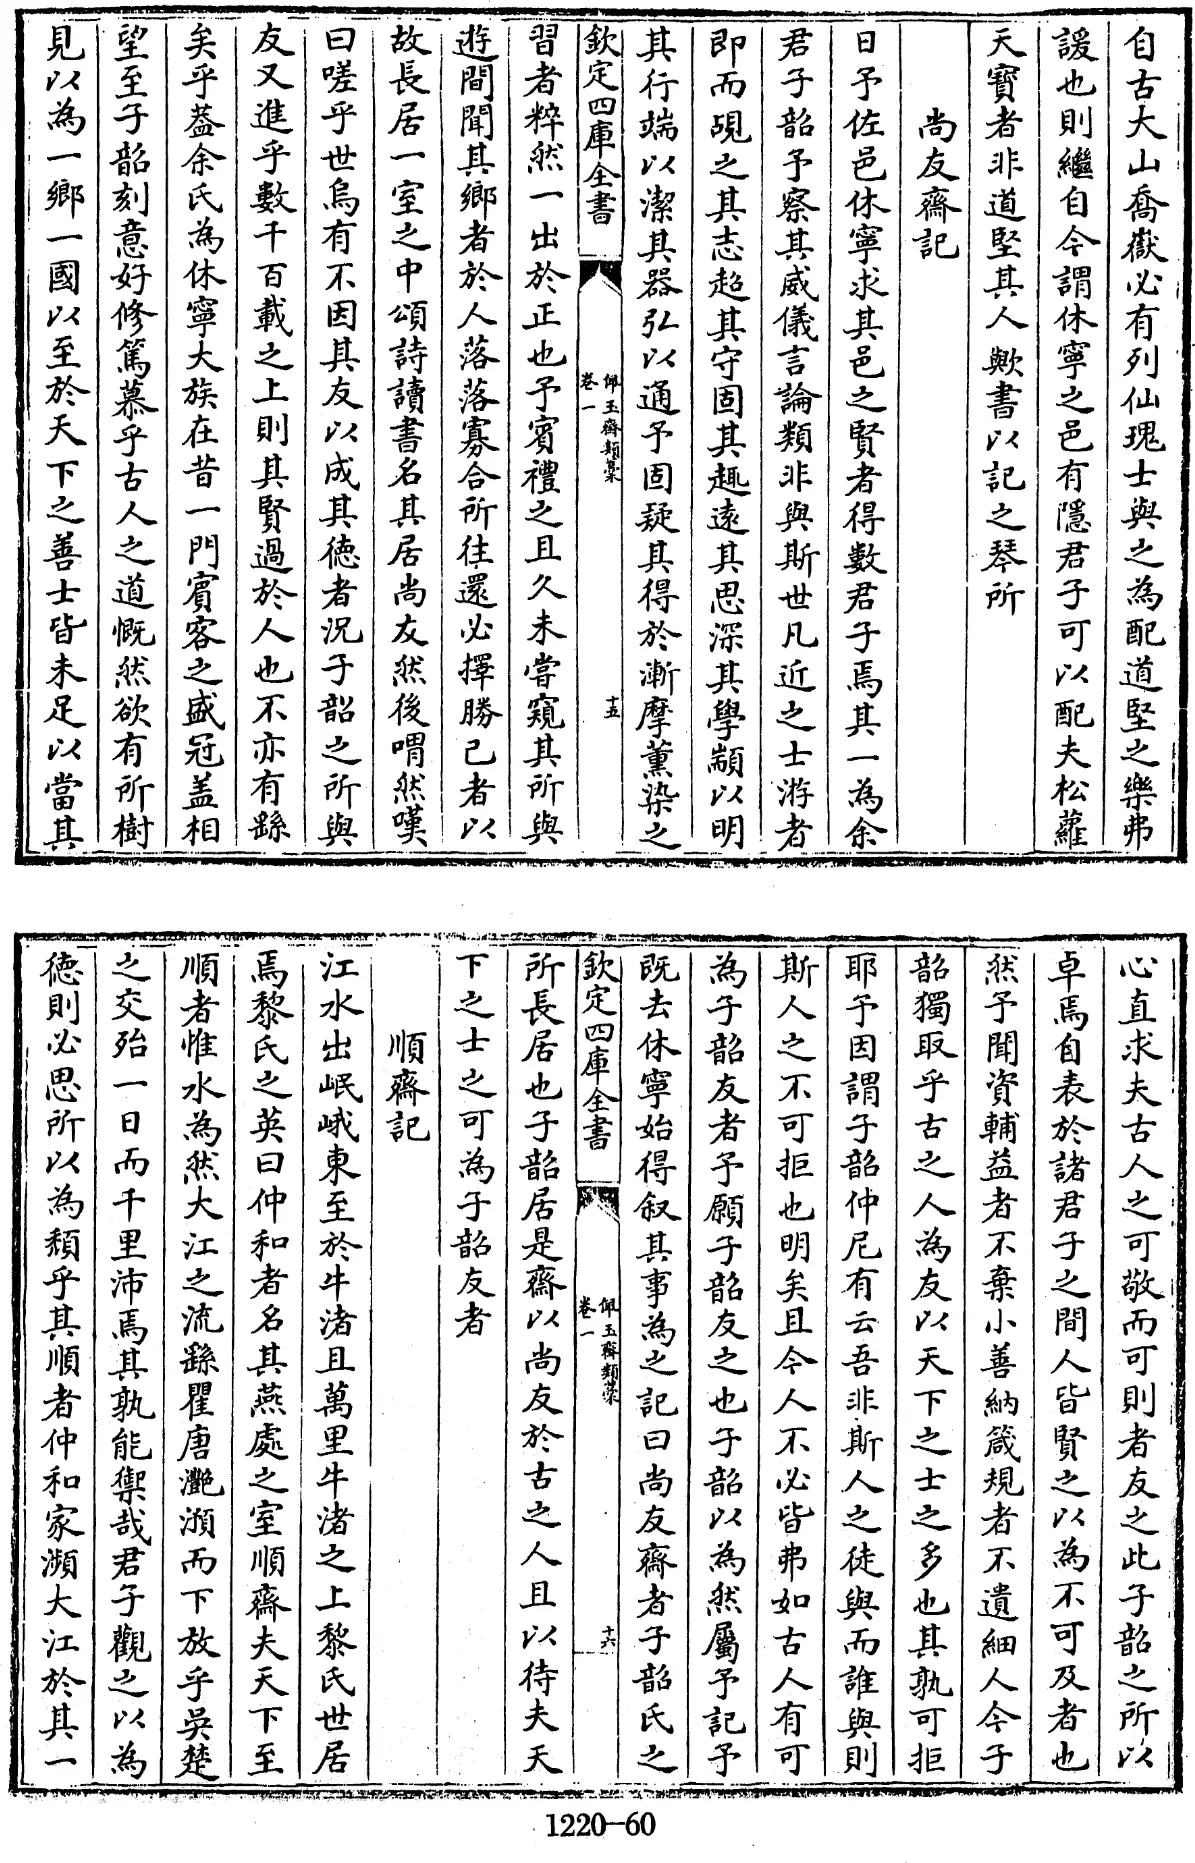 自古大山喬嶽必有列仙瑰士與之為配道堅之樂弗
諼也則繼自今謂休寧之邑有隱君子可以配夫松蘿
天寶者非道堅其人歟書以記之琴所
尚友齋記
日予佐邑休寧求其邑之賢者得數君子焉其一為余
君子韶予察其威儀言論類非與斯世凡近之士游者
即而覘之其志超其守固其趣遠其思深其學顓以明
其行端以潔其器弘以通予固疑其得於漸摩薰染之
欽定四庫全書
佩玉齋類藁
卷一
十五
習者粹然一出於正也予賓禮之且久未嘗窺其所與
遊間聞其鄉者於人落落寡合所往還必擇勝己者以
故長居一室之中頌詩讀書名其居尚友然後喟然嘆
曰嗟乎世烏有不因其友以成其徳者況子韶之所與
友又進乎數千百載之上則其賢過於人也不亦有繇
矣乎葢余氏為休寧大族在昔一門賓客之盛冠盖相
望至子韶刻意好修篤慕乎古人之道慨然欲有所樹
見以為一鄉一國以至於天下之善士皆未足以當其
心直求夫古人之可敬而可則者友之此子韶之所以
卓焉自表於諸君子之間人皆賢之以為不可及者也
然予聞資輔益者不棄小善納箴規者不遺細人今子
韶獨取乎古之人為友以天下之士之多也其孰可拒
耶予因謂子韶仲尼有云吾非斯人之徒與而誰與則
斯人之不可拒也明矣且今人不必皆弗如古人有可
為子韶友者予願子韶友之也子韶以為然屬予記予
既去休寧始得叙其事為之記曰尚友齋者子韶氏之
欽定四庫全書
佩玉齋類藁
卷一
十六
所長居也子韶居是齋以尚友於古之人且以待夫天
下之士之可為子韶友者
順齋記
江水出岷峨東至於牛渚且萬里牛渚之上黎氏世居
焉黎氏之英曰仲和者名其燕處之室順齋夫天下至
順者惟水為然大江之流繇瞿唐灔澦而下放乎吳楚
之交殆一日而千里沛焉其孰能禦哉君子觀之以為
徳則必思所以為頮乎其順者仲和家瀕大江於其一
1220-60